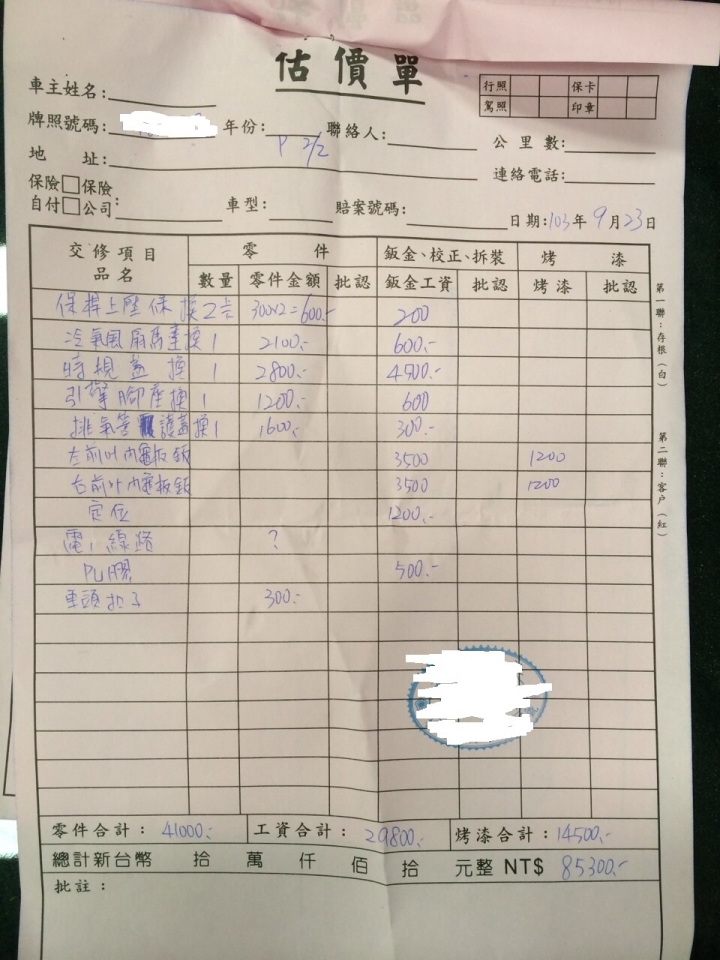 估價單
行照 保卡
駕照 印章
車主姓名:
牌照號碼: 年份: 聯絡人: 公里數:
P 2/2
地 址: 連絡電話:
保險□保險
自付□公司: 車型: 賠案號碼: 日期:103年9月23日
交修項目 零 件 鈑金、校正、拆裝 烤 漆
品名 數量 零件金額 批認 鈑金工資 批認 烤漆 批認
保桿上 保 換 2 300x2=600.- 200
冷氣風扇馬達換 1 2100.- 600.-
蓋 換 1 2800.- 4500.-
引擎腳座換 1 1200.- 600
排氣管 護蓋換 1 1600.- 300.-
左前叶內 板鈑 3500 1200
右前叶內 板鈑 3500 1200
定位 1200.-
電 線路 ?
PU膠 500.-
車頭扣子 300.-
第一聯:存根(白)
第二聯:客戶(紅)
零件合計: 41000.- 工資合計: 29800.- 烤漆合計: 14500.-
總計新台幣 拾 萬 仟 佰 拾 元整 NT$ 85300.-
批註: